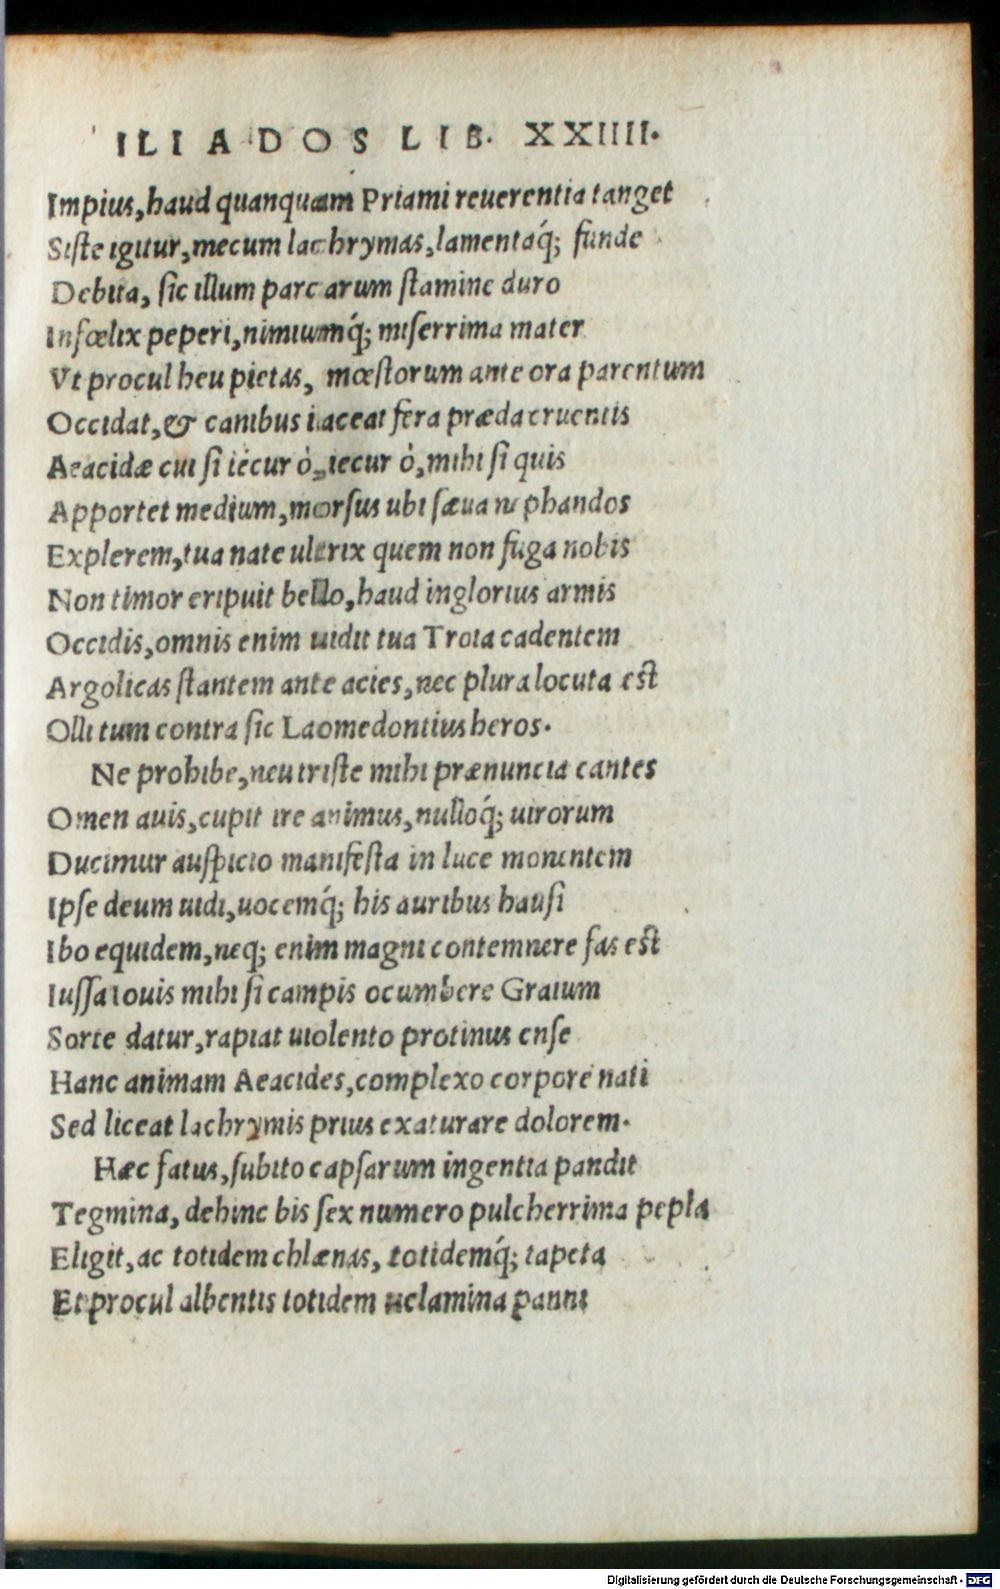 ILIADOS LIB. XXIIII.
Impius, haud quanquam Priami reuerentia tanget
Siste igitur, mecum lachrymas, lamentaq́; funde
Debita, sic illum parcarum stamine duro
Infœlix peperi, nimiumq́; miserrima mater
Vt procul heu pietas, mœstorum ante ora parentum
Occidat, & canibus iaceat fera præda cruentis
Aeacidæ cui si iecur ò, iecur ò, mihi si quis
Apportet medium, morsus ubi sæua nephandos
Explerem, tua nate ultrix quem non fuga nobis
Non timor eripuit bello, haud inglorius armis
Occidis, omnis enim uidit tua Troia cadentem
Argolicas stantem ante acies, nec plura locuta est
Olli tum contra sic Laomedontius heros.
Ne prohibe, neu triste mihi prænuncia cantes
Omen auis, cupit ire animus, nulloq́; uirorum
Ducimur auspicio manifesta in luce monentem
Ipse deum uidi, uocemq́; his auribus hausi
Ibo equidem, neq; enim magni contemnere fas est
Iussa Iouis mihi si campis ocumbere Graium
Sorte datur, rapiat uiolento protinus ense
Hanc animam Aeacides, complexo corpore nati
Sed liceat lachrymis prius exaturare dolorem.
Hæc fatus, subito capsarum ingentia pandit
Tegmina, dehinc bis sex numero pulcherrima pepla
Eligit, ac totidem chlænas, totidemq́; tapeta
Et procul albentis totidem uelamina panni
Digitalisierung gefördert durch die Deutsche Forschungsgemeinschaft - DFG